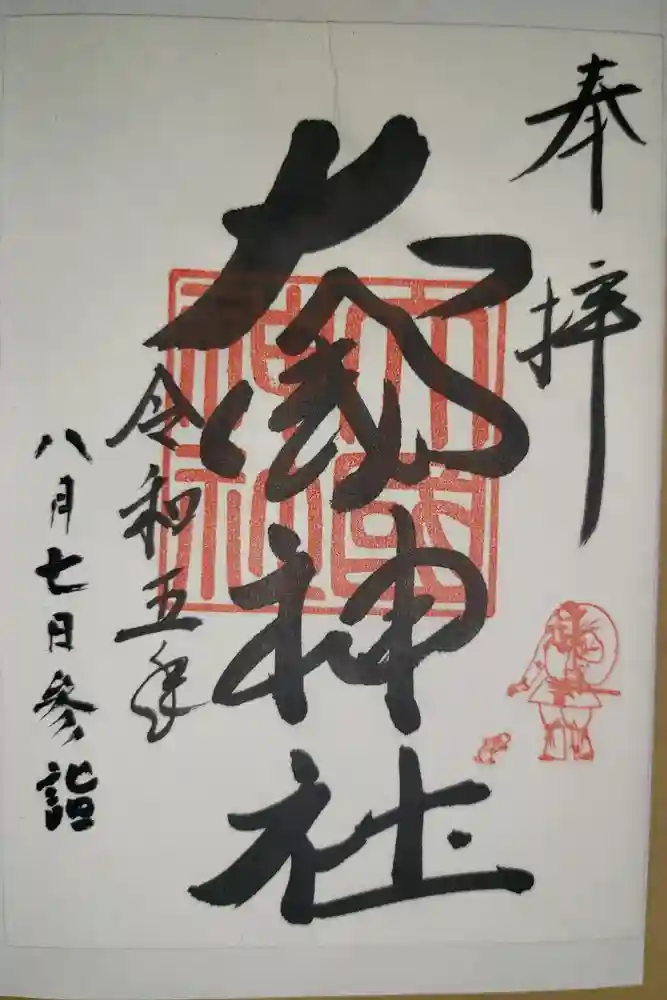 奉拝
大國神社
大國
神社
令和五年
八月七日参詣